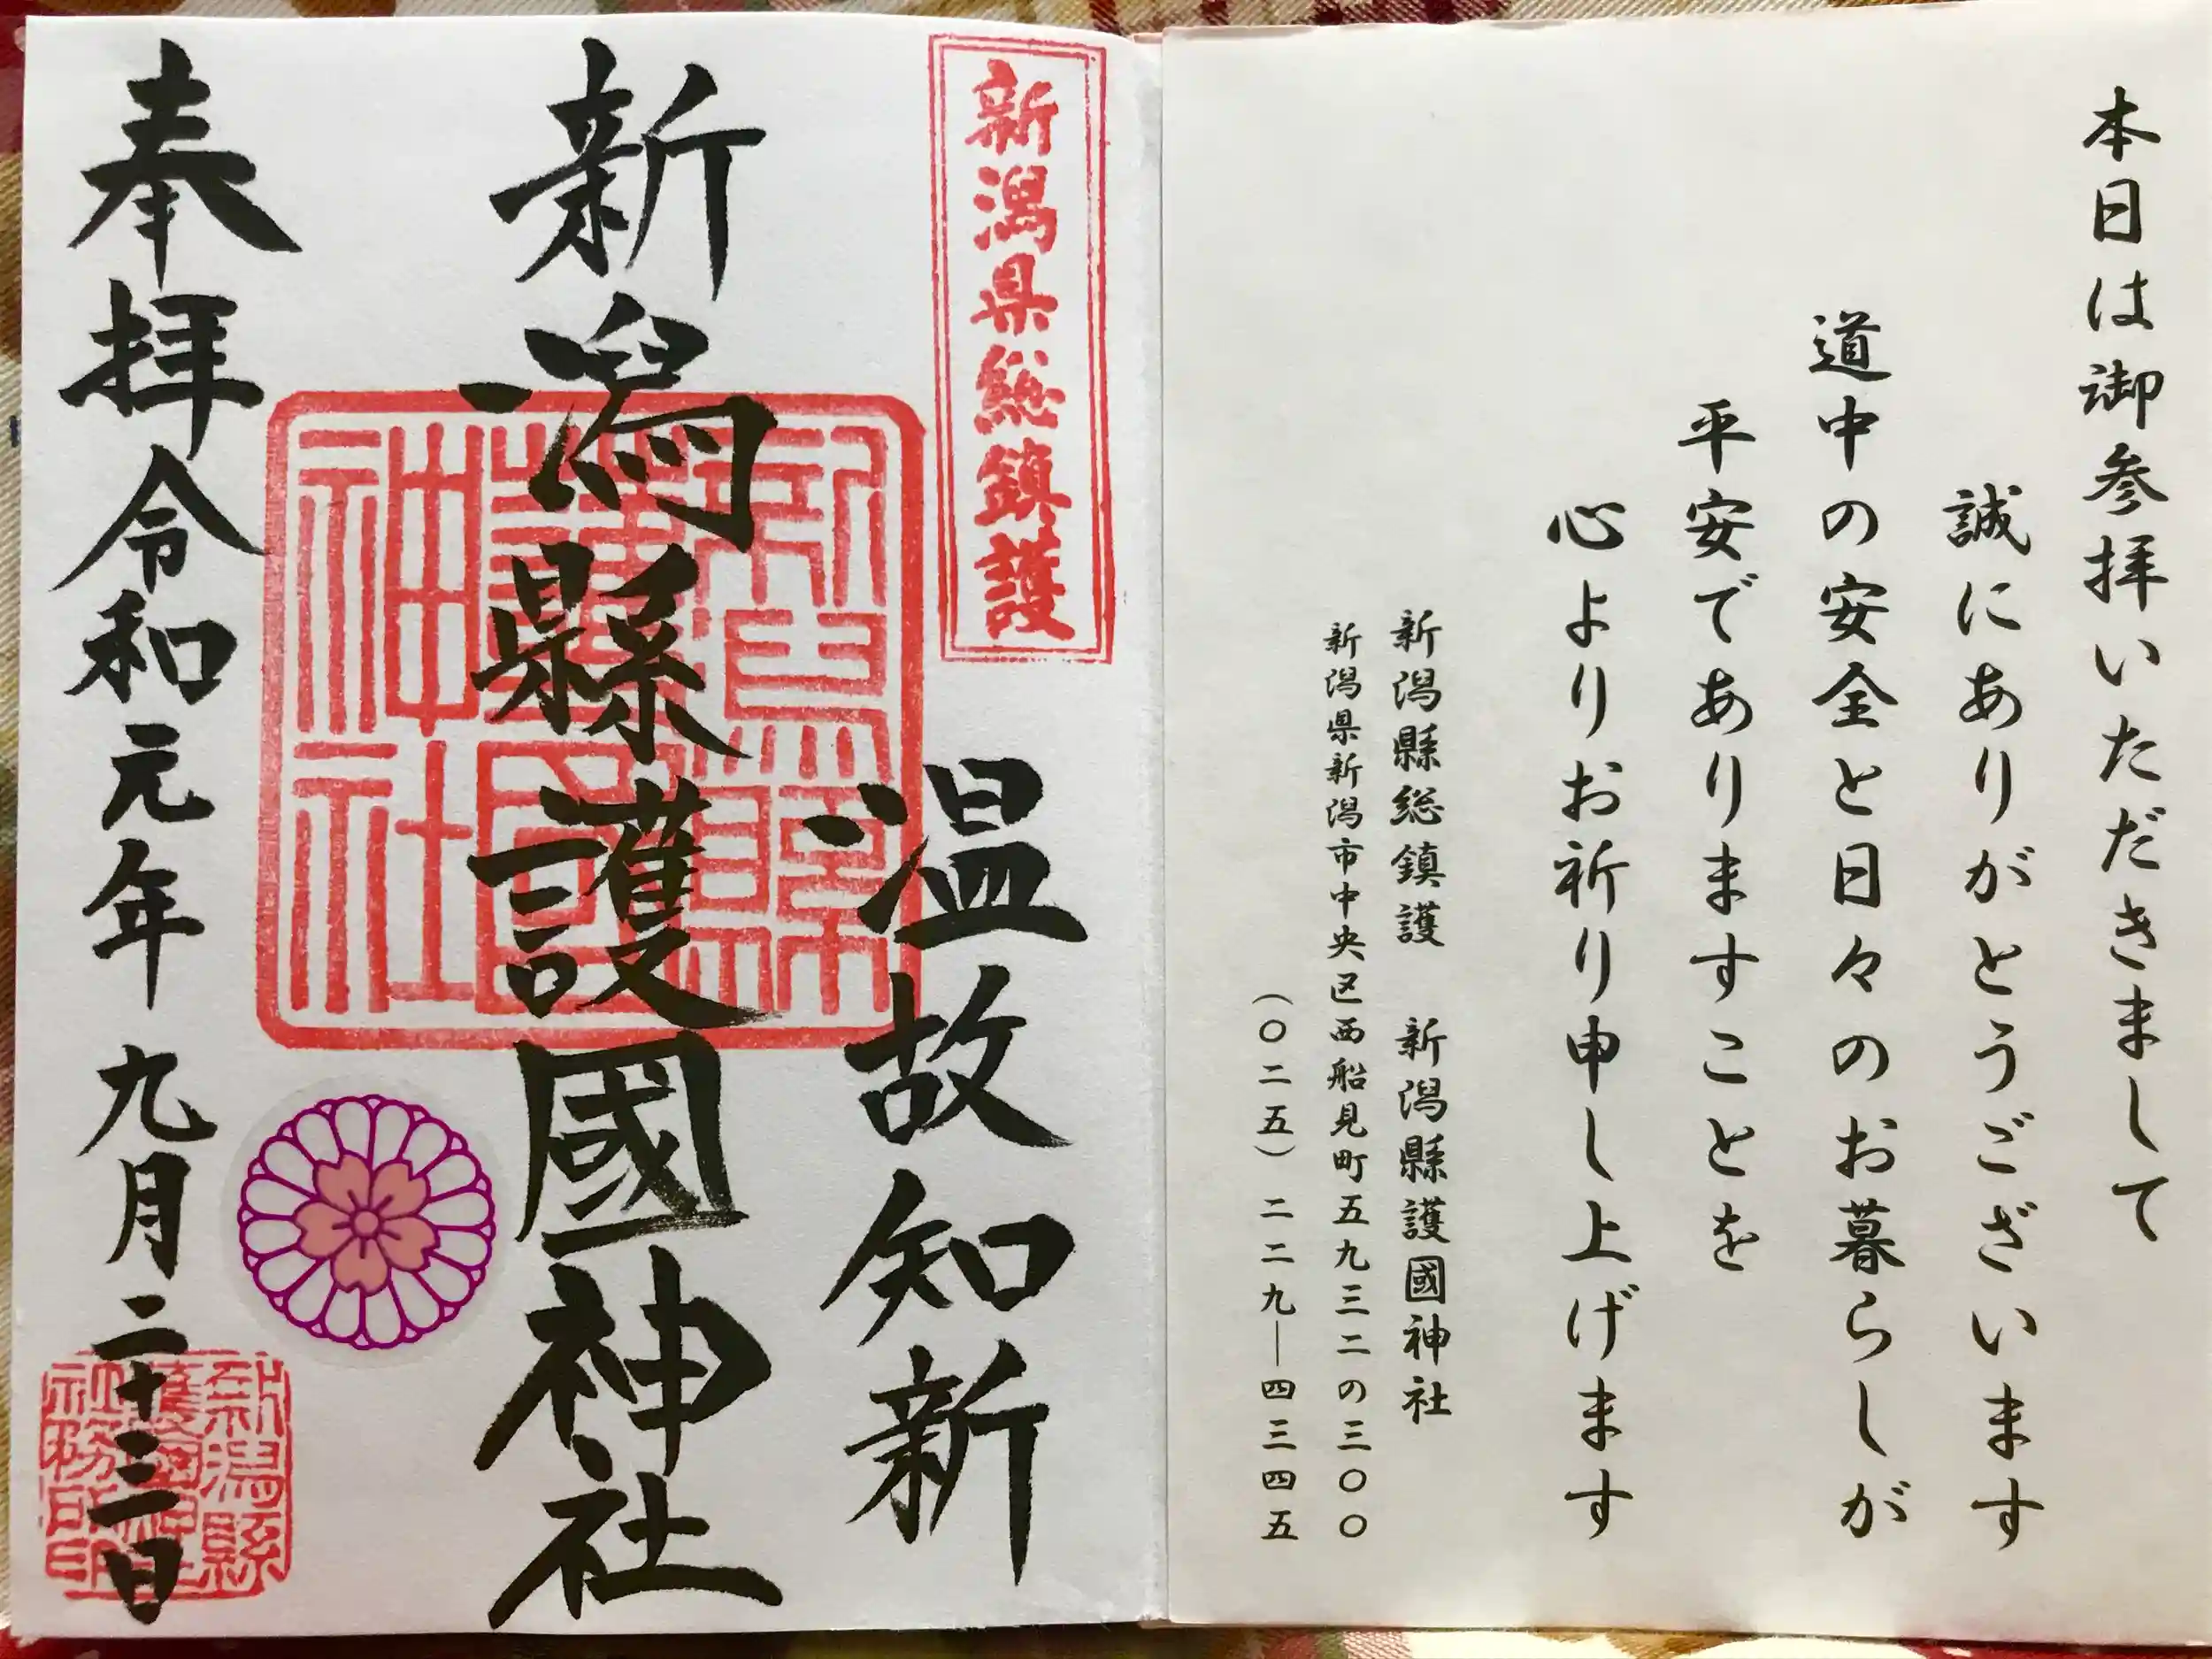 本日は御参拝いただきまして
誠にありがとうございます
道中の安全と日々のお暮らしが
平安でありますことを
心よりお祈り申し上げます
新潟縣総鎮護　新潟縣護國神社
新潟県新潟市中央区西船見町五九三二の三〇〇
（〇二五）二二九―四三四五
新潟県総鎮護
温故知新
新潟縣護國神社
新潟縣護國神社
奉拝令和元年九月二十三日
新潟縣護國神社社務所印